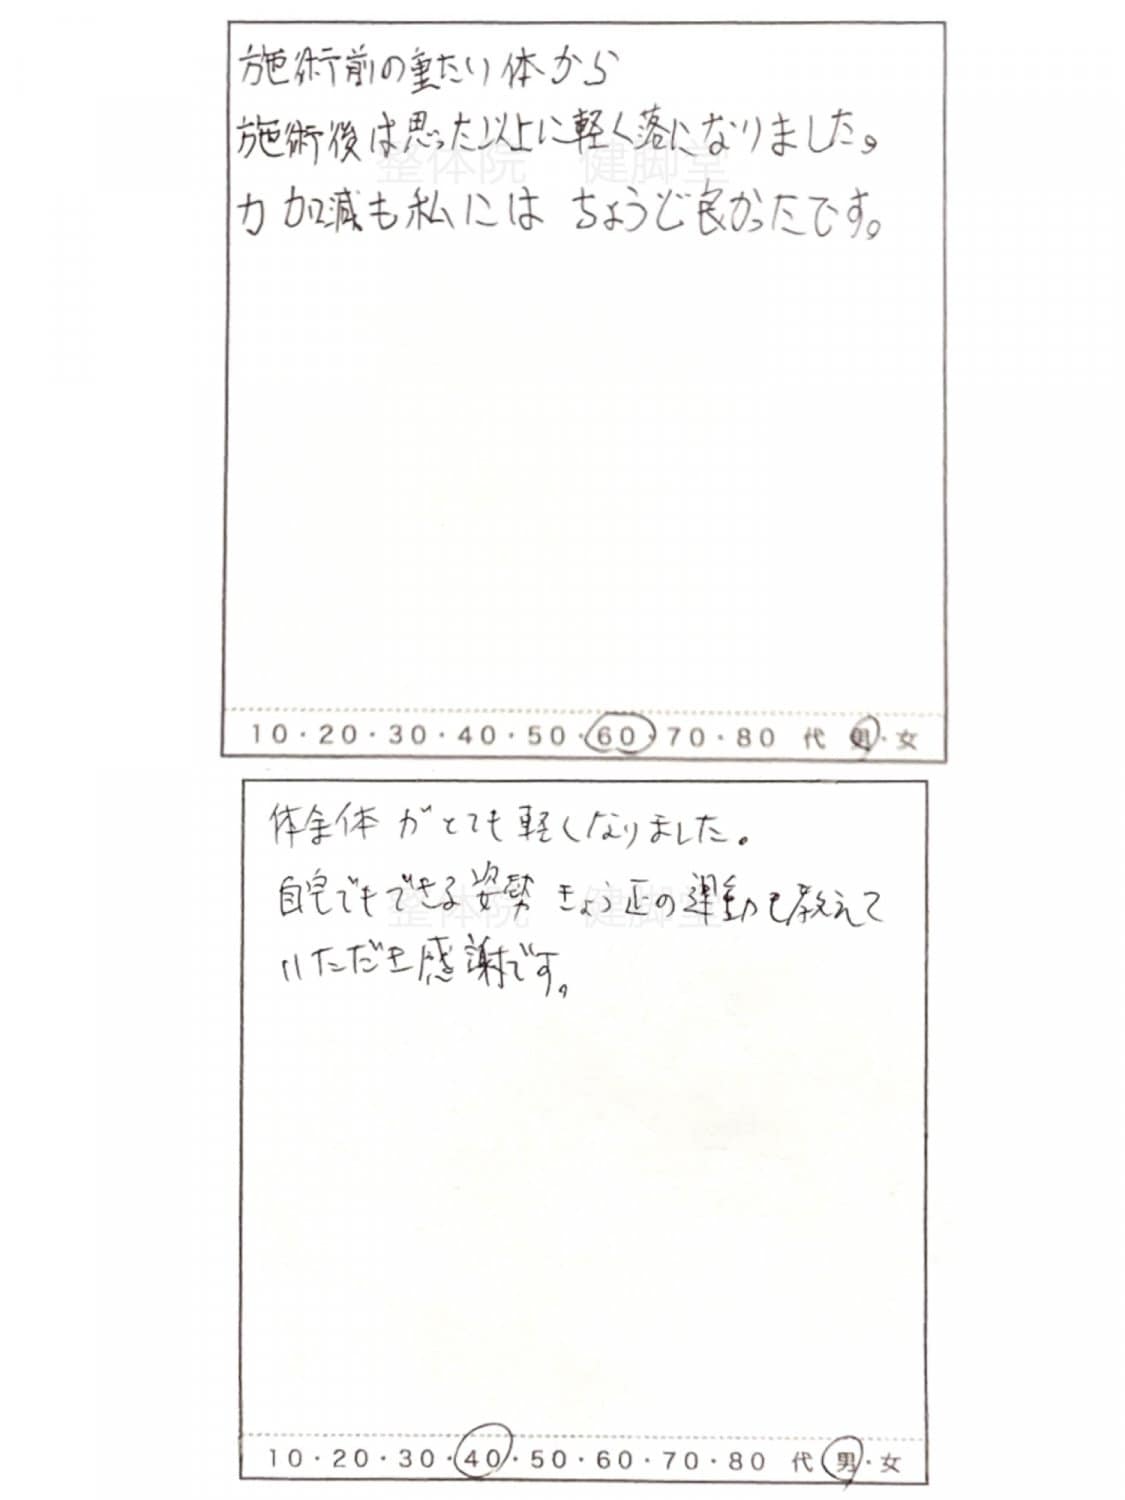 施術前の重たい体から
施術後は思った以上に軽く落になりました。
力加減も私には ちょうど良かったです。
整体院 健脚堂
10・20・30・40・50・60・70・80 代 男・女
体全体がとても軽くなりました。
自宅でもできる姿勢きょう正の運動も教えて
いただき感謝です。
整体院 健脚堂
10・20・30・40・50・60・70・80 代 男・女